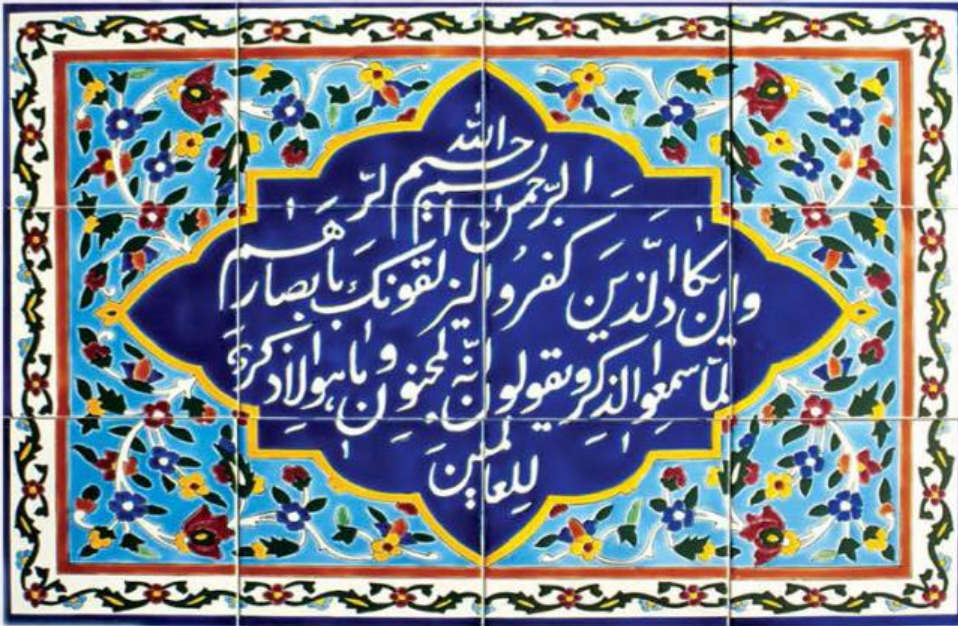 بسم الله الرحمن الرحيم
وإن يكاد الذين كفروا ليزلقونك بأبصارهم
لما سمعوا الذكر ويقولون إنه لمجنون وما هو إلا ذكر
للعالمين